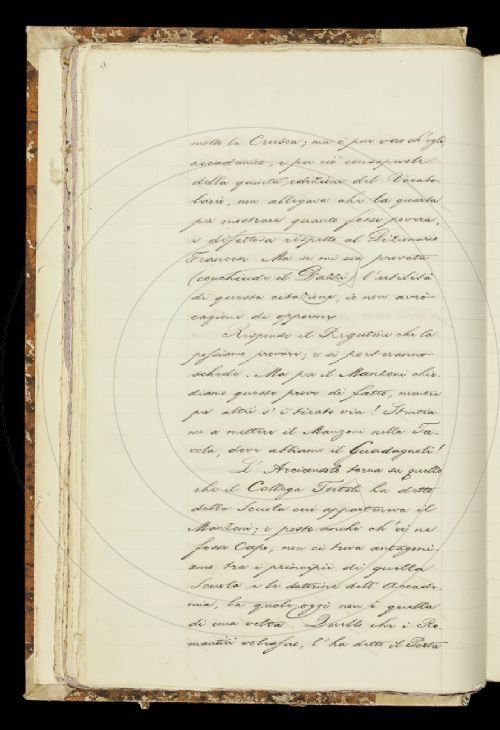 molto la Crusca; ma è pur vero ch'egli,
accademico, e per ciò consapevole
della quinta edizione del Vocabo-
lario, non allegava che la quarta
per mostrare quanto fosse povera,
e difettosa rispetto al Dizionario
Francese. Ma se mi sia provata
(conchiude il Dazzi) l'utilità
di questa citazione, io non avrò
cagione di oppormi.
Risponde il Rigutini che la
possiamo provare; e si porteranno
schede. Ma per il Manzoni chie-
diamo queste prove di fatto, mentre
per altri s'è tirato via!
ne a mettere il Manzoni nella Ta-
vola, dove abbiamo il Guadagnoli!
L'Arciconsolo torna su quello
che il Collega Tortoli ha detto
della Scuola cui apparteneva il
Manzoni; e posto anche ch'ei ne
fosse Capo, non ci trova antagoni-
smo tra i principii di quella
Scuola e le dottrine dell'Accade-
mia, la quale oggi non è quella
di una volta. Quello che i Ro-
mantici volessero, l'ha detto il Porta